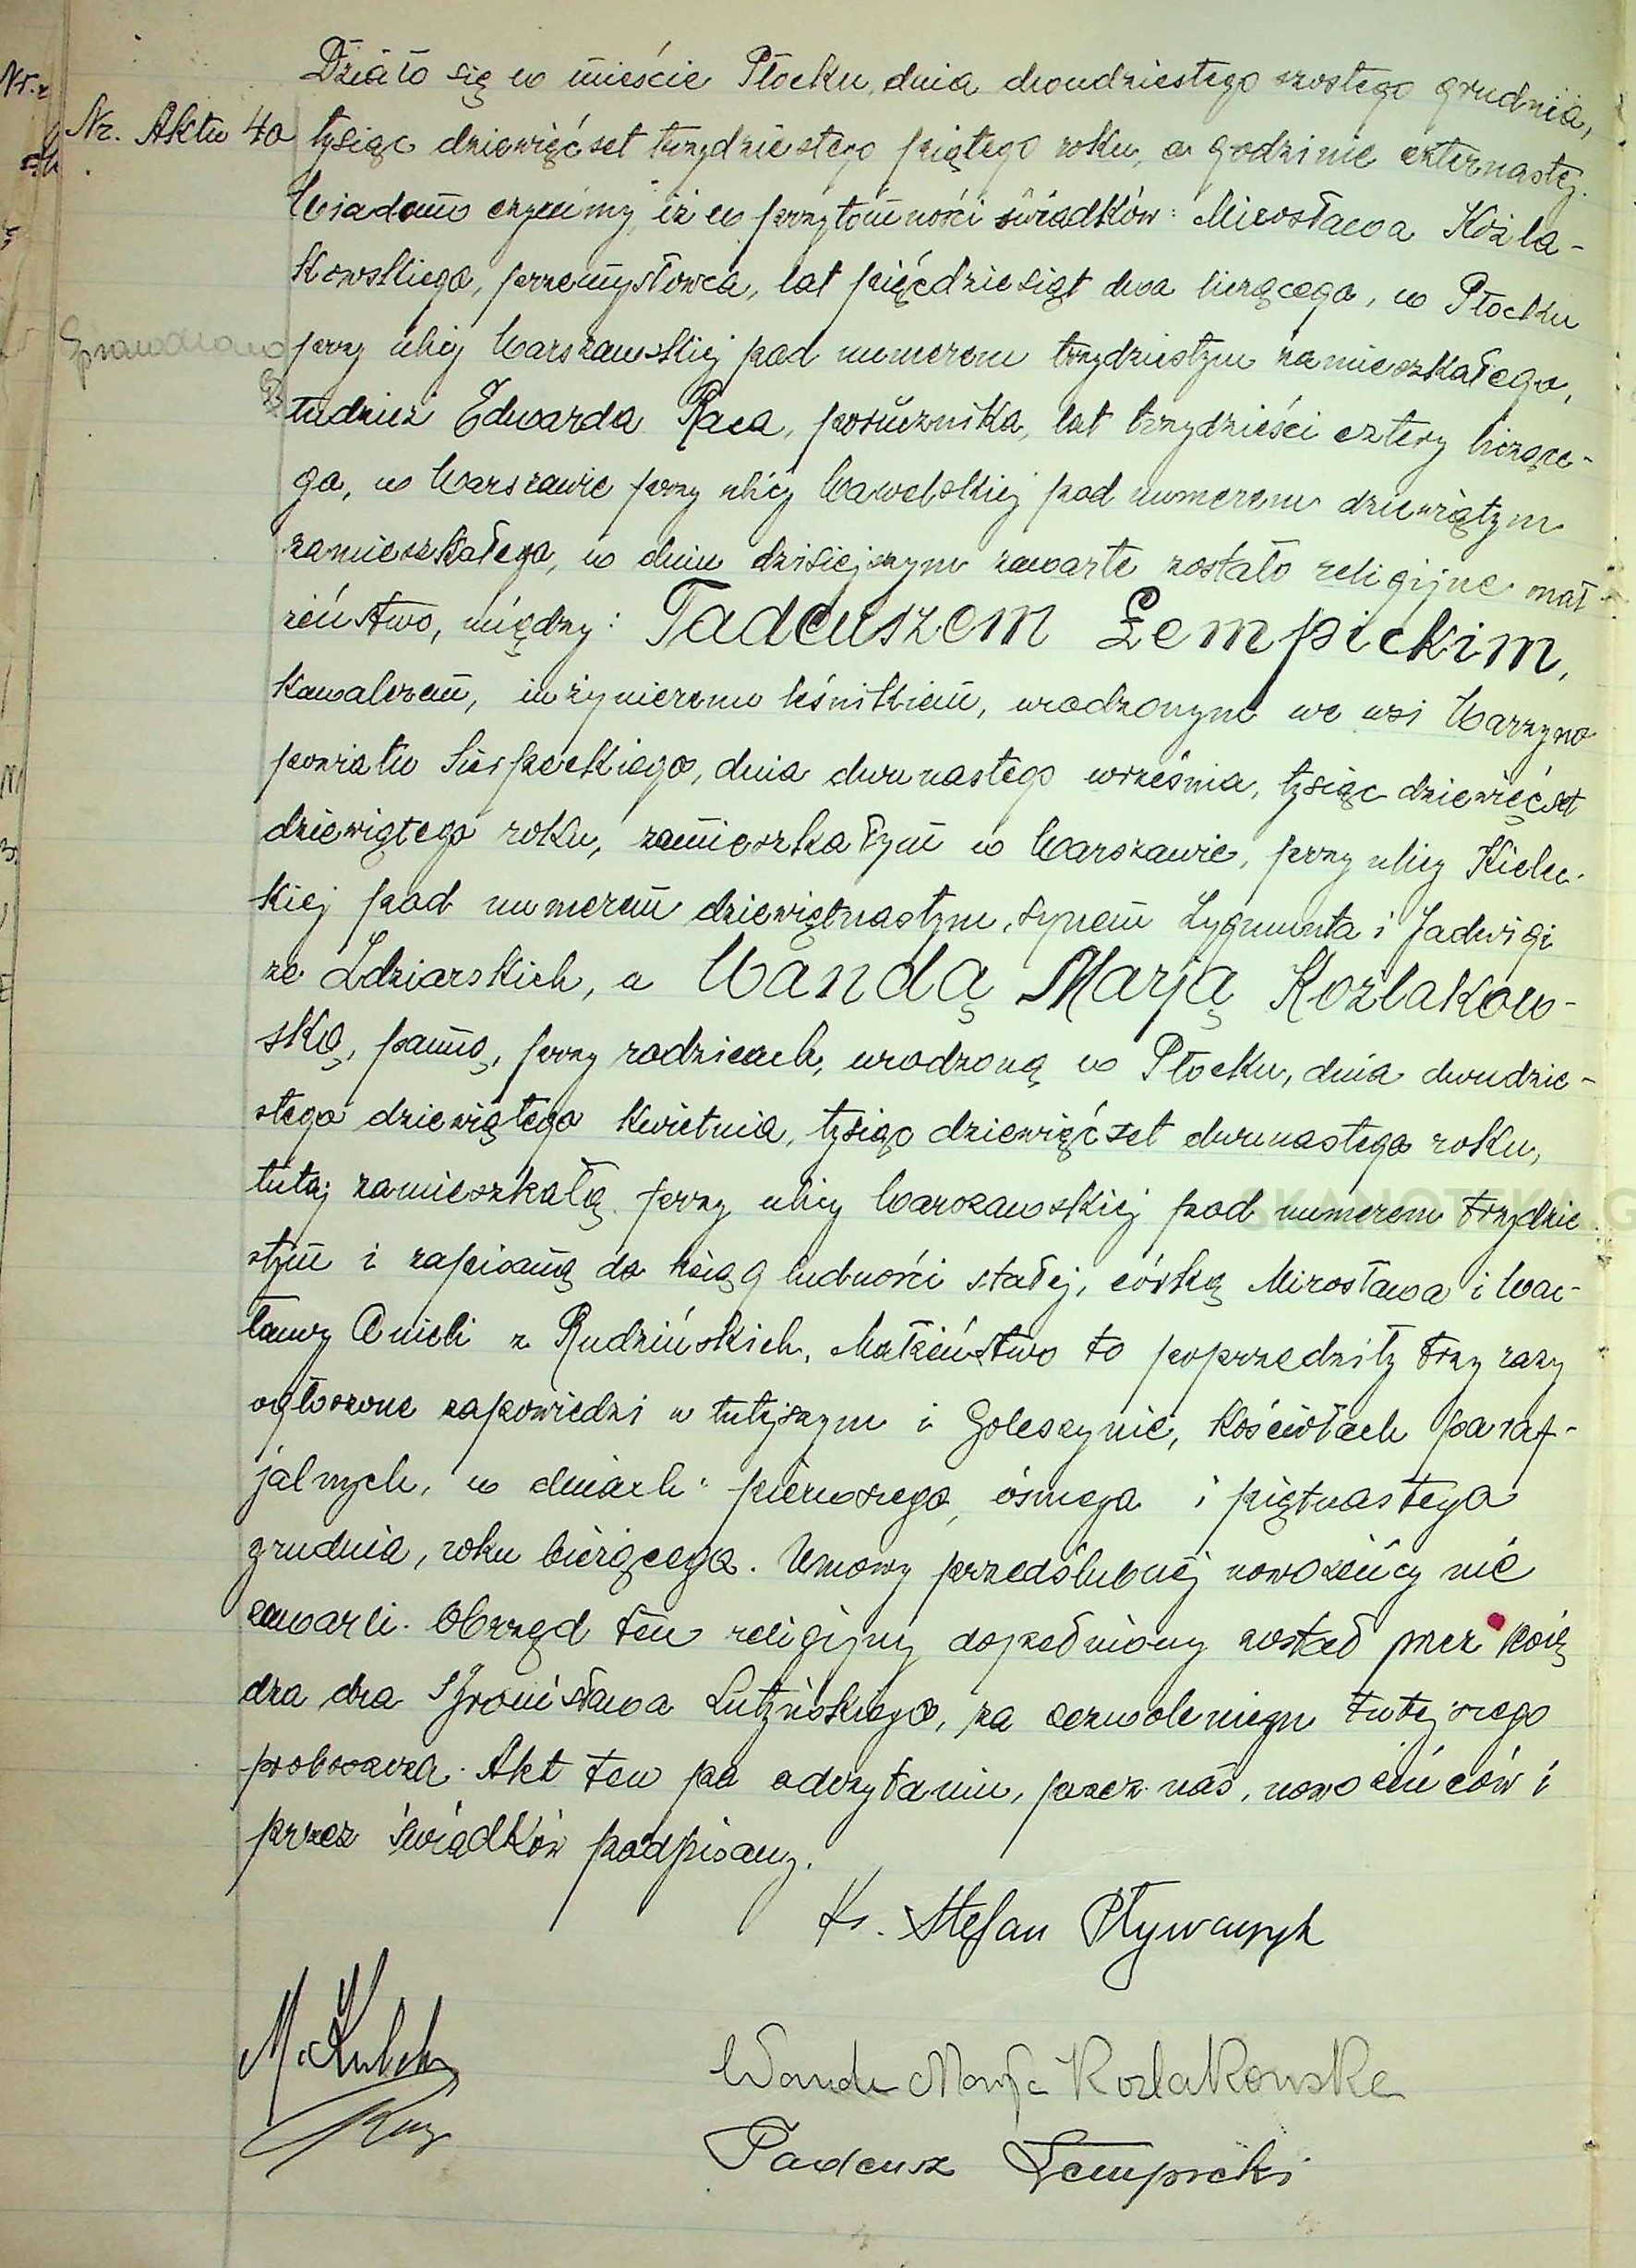 Działo się w mieście Płocku, dnia dwudziestego szóstego grudnia,
Nr. Aktu 40 tysiąc dziewięćset trzydziestego piątego roku, o godzinie czternastej.
Wiadomo czynimy, iż w przytomności świadków: Mirosława Koźla-
kowskiego, przemysłowca, lat pięćdziesiąt dwa liczącego, w Płocku
Sprawdzono przy ulicy Warszawskiej pod numerem trzydziestym zamieszkałego,
tudzież Edwarda Raca, porucznika, lat trzydzieści cztery liczące-
go, w Warszawie przy ulicy Wawelskiej pod numerem dziewiątym
zamieszkałego, w dniu dzisiejszym zawarte zostało religijne mał
żeństwo, między: Tadeuszem Łempickim,
kawalerem, inżynierem leśnikiem, urodzonym we wsi Warzyno
powiatu Sierpeckiego, dnia dwunastego września, tysiąc dziewięćset
dziewiątego roku, zamieszkałym w Warszawie, przy ulicy Kielec-
kiej pod numerem dziewiętnastym, synem Zygmunta i Jadwigi
ze Zdziarskich, a Wandą Marją Koźlakow-
ską, panną, przy rodzicach, urodzoną w Płocku, dnia dwudzie-
stego dziewiątego kwietnia, tysiąc dziewięćset dwunastego roku,
tutaj zamieszkałą przy ulicy Warszawskiej pod numerem trzydzie
stym i zapisaną do ksiąg ludności stałej, córką Mirosława i Wac-
ławy Anieli z Rudzińskich. Małżeństwo to poprzedziły trzy razy
ogłoszone zapowiedzi w tutejszym i Goleszynie, kościołach paraf-
jalnych, w dniach: pierwszego, ósmego i piętnastego
grudnia, roku bieżącego. Umowy przedślubnej nowożeńcy nie
zawarli. Obrzęd ten religijny dopełniony został przez księ
dza dra Bronisława Lutyńskiego, za zezwoleniem tutejszego
proboszcza. Akt ten po odczytaniu, przez nas, nowożeńców i
przez świadków podpisany.
Ks. Stefan Pływaczyk
Wanda Marja Koźlakowska
Tadeusz Łempicki